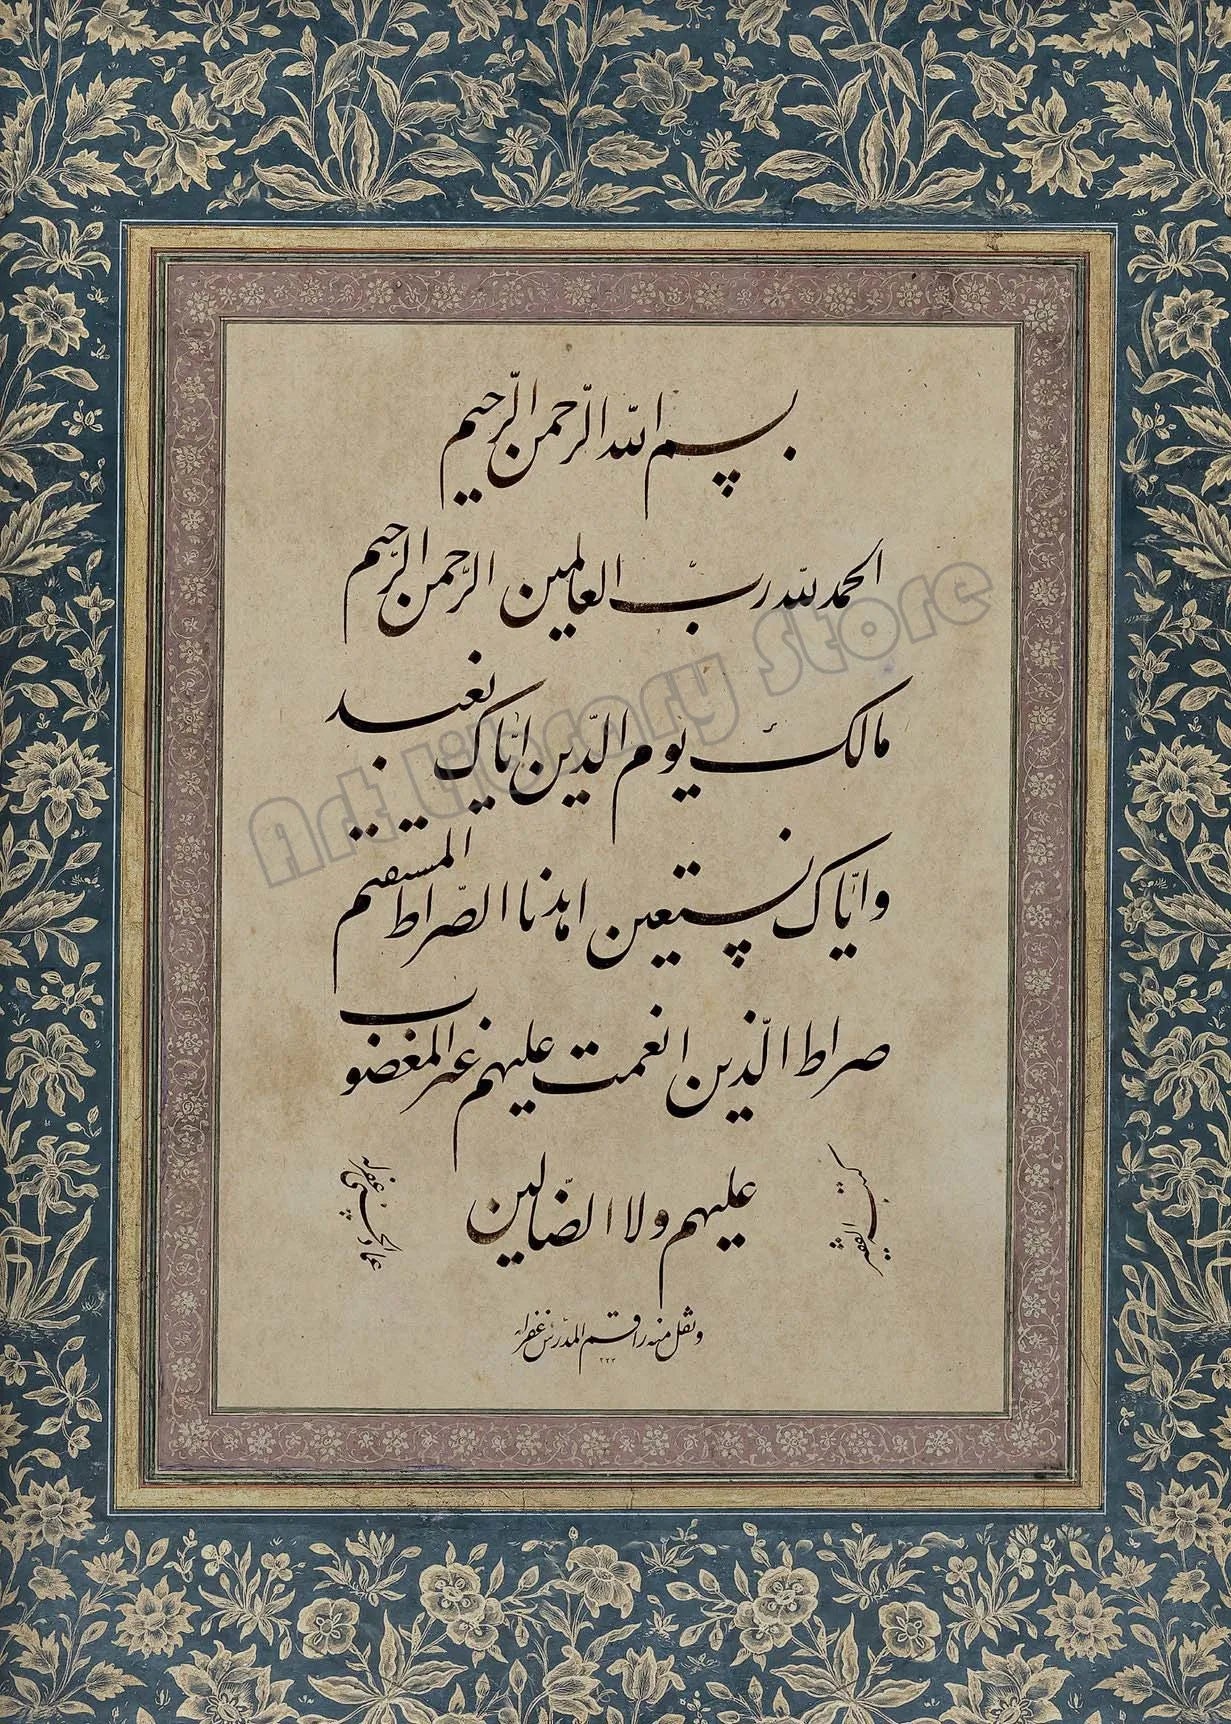 بسم الله الرّحمن الرّحیم
الحمد لله ربّ العالمین الرّحمن الرّحیم
مالک یوم الدّین ایّاک نعبد
وایّاک نستعین اهدنا الصّراط المستقیم
صراط الّذین انعمت علیهم غیر المغضوب
علیهم ولا الضّالین
کتبه الفقیر
عماد الحسنی غفر له
ونقل منه راقم المدرّس غفر له
۲۲۳
Art Library Store